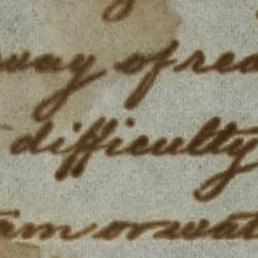 way of rea
difficulty
am or wat